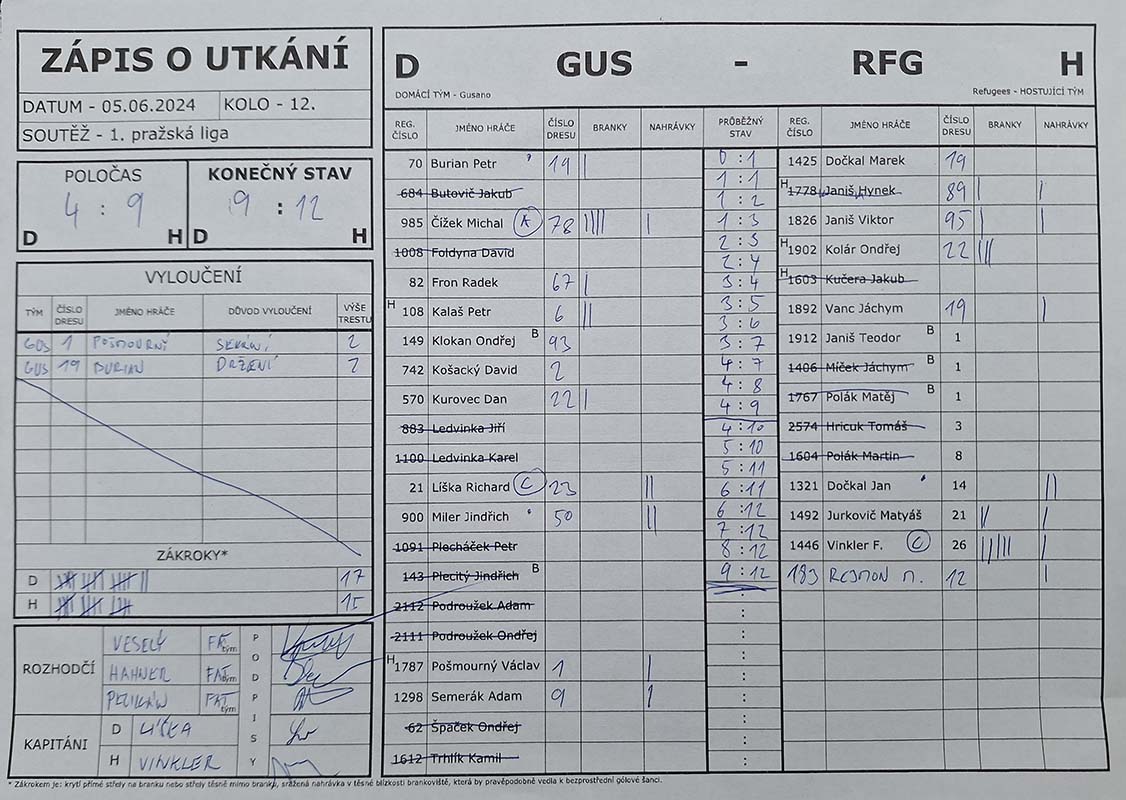 ZÁPIS O UTKÁNÍ
DATUM - 05.06.2024 KOLO - 12.
SOUTĚŽ - 1. pražská liga
POLOČAS
4 : 9
D H
KONEČNÝ STAV
9 : 12
D H
VYLOUČENÍ
TÝM ČÍSLO DRESU JMÉNO HRÁČE DŮVOD VYLOUČENÍ VÝŠE TRESTU
GUS 1 POŠMOURNÝ 2
GUS 19 BURIAN DRŽENÍ 2
ZÁKROKY*
D 17
H 15
ROZHODČÍ
VESELÝ FAT tým
HAHNER FAT tým
PELIKÁN FAT tým
KAPITÁNI
D LÍŠKA
H VINKLER
PODPISY
D GUS - RFG H
DOMÁCÍ TÝM - Gusano Refugees - HOSTUJÍCÍ TÝM
REG. ČÍSLO JMÉNO HRÁČE ČÍSLO DRESU BRANKY NAHRÁVKY PRŮBĚŽNÝ STAV REG. ČÍSLO JMÉNO HRÁČE ČÍSLO DRESU BRANKY NAHRÁVKY
70 Burian Petr 19 |
684 Butovič Jakub
985 Čížek Michal A 78 |||| |
1008 Foldyna David
82 Fron Radek 67 |
H 108 Kalaš Petr 6 ||
149 Klokan Ondřej B 93
742 Košacký David 2
570 Kurovec Dan 22 |
883 Ledvinka Jiří
1100 Ledvinka Karel
21 Líška Richard C 23 ||
900 Miler Jindřich 50 ||
1091 Plecháček Petr
143 Plecitý Jindřich B
2112 Podroužek Adam
2111 Podroužek Ondřej
H 1787 Pošmourný Václav 1 |
1298 Semerák Adam 9 |
62 Špaček Ondřej
1612 Trhlík Kamil
0 : 1
1 : 1
1 : 2
1 : 3
2 : 3
2 : 4
3 : 4
3 : 5
3 : 6
3 : 7
4 : 7
4 : 8
4 : 9
4 : 10
5 : 10
5 : 11
6 : 11
6 : 12
7 : 12
8 : 12
9 : 12
1425 Dočkal Marek 19
H 1778 Janiš Hynek 89 | |
1826 Janiš Viktor 95 | |
H 1902 Kolár Ondřej 22 |||
H 1603 Kučera Jakub
1892 Vanc Jáchym 19 |
1912 Janiš Teodor B 1
1406 Míček Jáchym B 1
1767 Polák Matěj B 1
2574 Hricuk Tomáš 3
1604 Polák Martin 8
1321 Dočkal Jan 14 ||
1492 Jurkovič Matyáš 21 |
1446 Vinkler F. C 26 ||||| |
183 REJMON M. 12 |
* Zákrokem je: krytí přímé střely na branku nebo střely těsně mimo branku, sražená nahrávka v těsné blízkosti brankoviště, která by pravěpodobně vedla k bezprostřední gólové šanci.